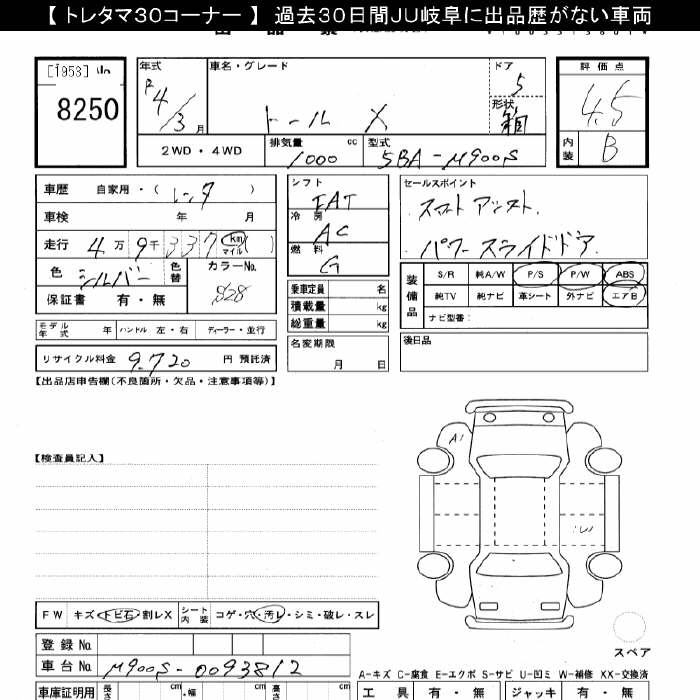 【 トレタマ30コーナー 】 過去30日間JU岐阜に出品歴がない車両
[1953]
8250
年式 R4/3月
車名・グレード トール X
ドア 5
形状 箱
2WD・4WD
排気量 1000 cc
型式 5BA-M900S
評価点 4.5
内装 B
車歴 自家用・( レンタ )
車検 年 月
走行 4万 9千 337 km マイル ( )
色 シルバー
色替
カラーNo. S28
保証書 有・無
シフト FAT
冷房 AC
燃料 G
乗車定員 名
積載量 kg
総重量 kg
セールスポイント
スマートアシスト.
パワースライドドア.
装備品
S/R 純A/W P/S P/W ABS
純TV 純ナビ 革シート 外ナビ エアB
ナビ型番:
モデル年式 年 ハンドル 左・右 ディーラー・並行
リサイクル料金 9.720 円 預託済
名変期限 月 日
後日品
【出品店申告欄(不良箇所・欠品・注意事項等)】
【検査員記入】
A1
FW キズ・トビ石・割レX
シート内装 コゲ・穴・汚レ・シミ・破レ・スレ
スペア
登録No.
車台No. M900S-0093812
A-キズ C-腐食 E-エクボ S-サビ U-凹ミ W-補修 XX-交換済
車庫証明用 長さ cm ・幅 cm 高さ cm
工具 有・無 ジャッキ 有・無